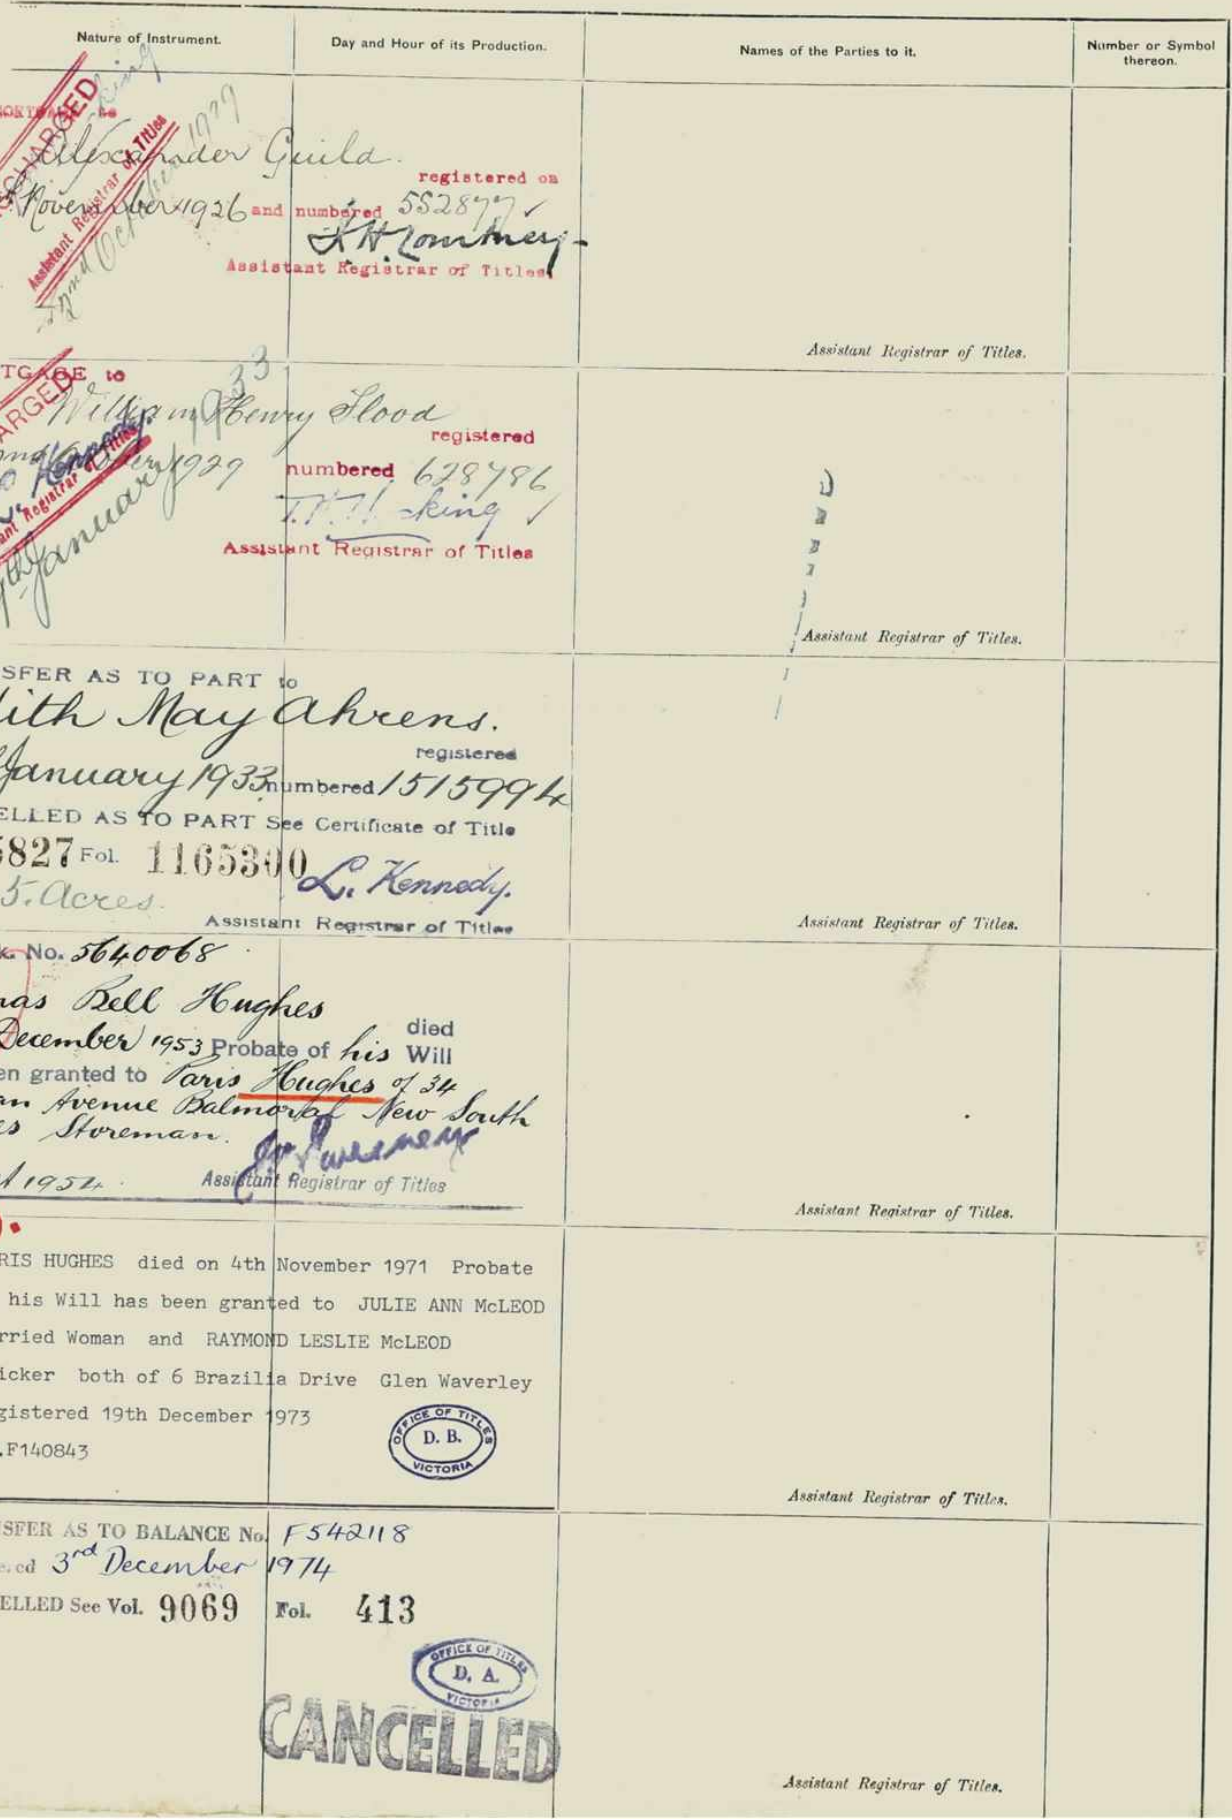 Nature of Instrument. Day and Hour of its Production. Names of the Parties to it. Number or Symbol thereon.
to
DISCHARGED
Assistant Registrar of Titles
Alexander Guild.
registered on
November 1926 and numbered 552877
Assistant Registrar of Titles
Assistant Registrar of Titles.
TGAGE to
ARGED
William Henry Flood
registered
1929 numbered 628786
L. Kennedy.
ant Registrar of Titles
January 1933
Assistant Registrar of Titles
Assistant Registrar of Titles.
SFER AS TO PART to
ith May Ahrens.
registered
January 1933 numbered 1515994
ELLED AS TO PART See Certificate of Title
5827 Fol. 1165300
5. Acres.
L. Kennedy.
Assistant Registrar of Titles
Assistant Registrar of Titles.
k. No. 5640068
as Bell Hughes
died
December 1953 Probate of his Will
en granted to Paris Hughes of 34
an Avenue Balmoral New South
es Storeman.
1954.
Assistant Registrar of Titles
Assistant Registrar of Titles.
RIS HUGHES died on 4th November 1971 Probate
his Will has been granted to JULIE ANN McLEOD
rried Woman and RAYMOND LESLIE McLEOD
icker both of 6 Brazilia Drive Glen Waverley
gistered 19th December 1973
.F140843
OFFICE OF TITLES
D. B.
VICTORIA
Assistant Registrar of Titles.
SFER AS TO BALANCE No. F542118
ed 3rd December 1974
ELLED See Vol. 9069 Fol. 413
OFFICE OF TITLES
D. A.
VICTORIA
CANCELLED
Assistant Registrar of Titles.